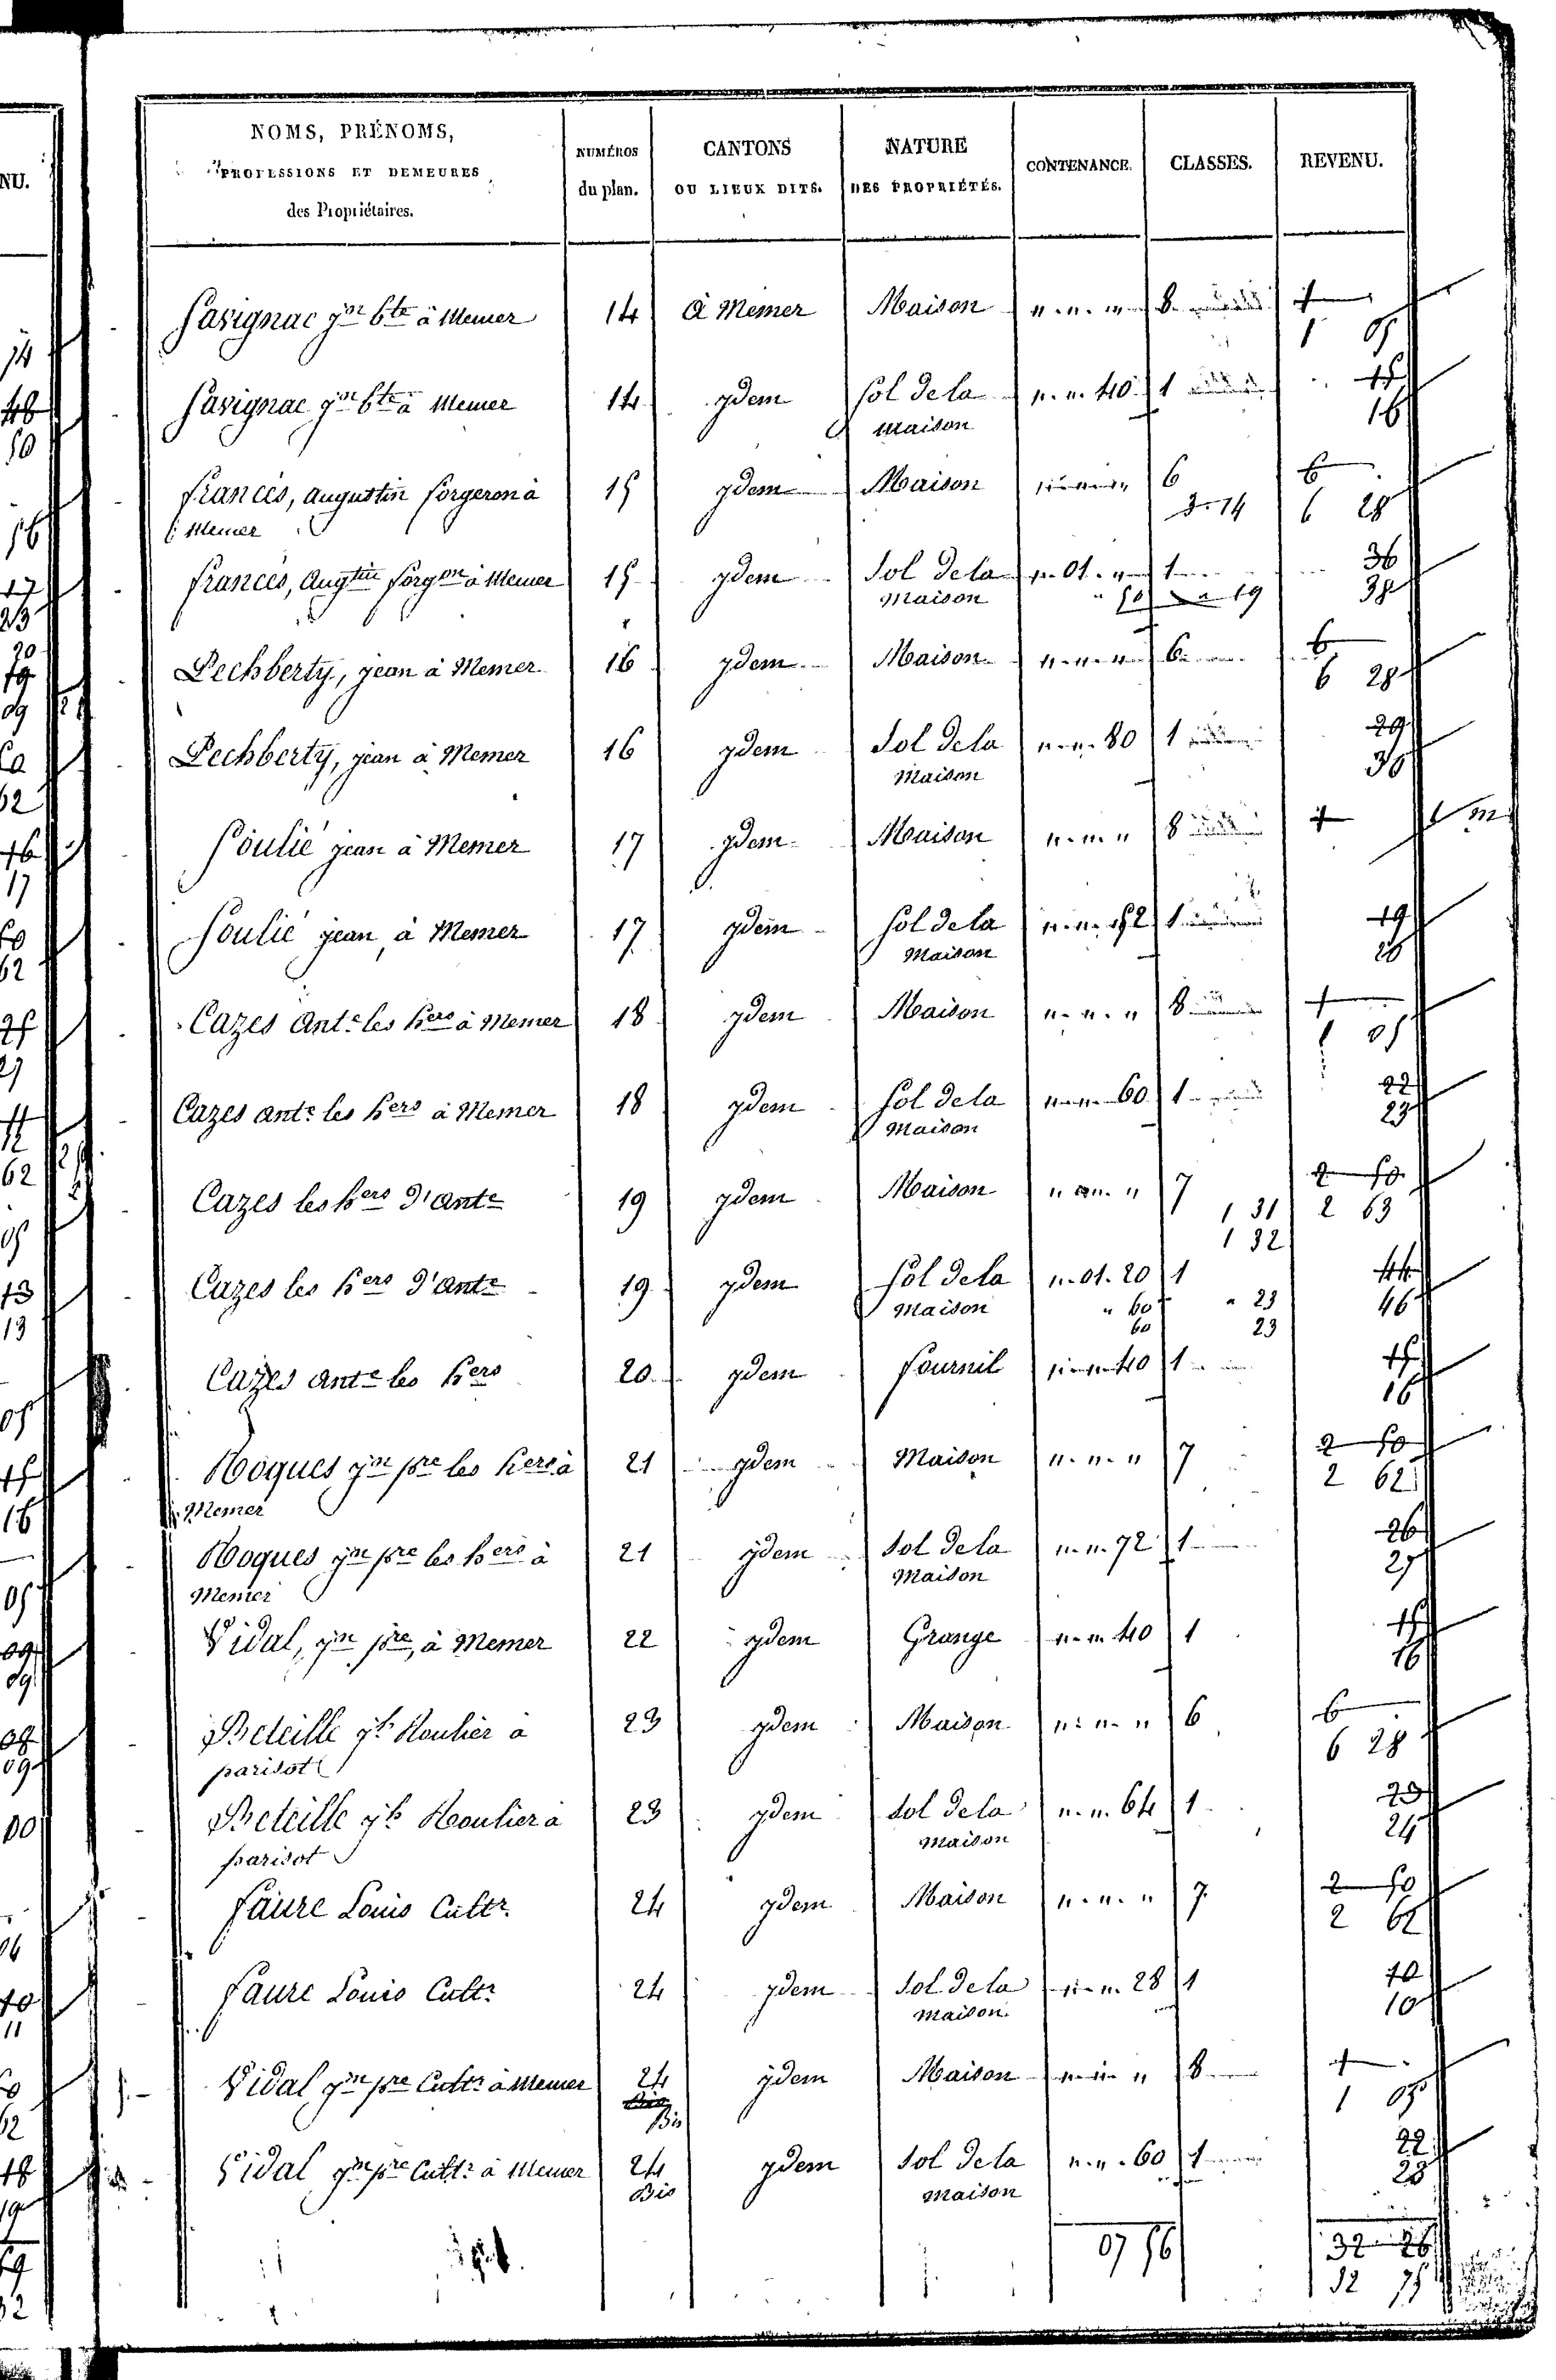 NOMS, PRÉNOMS,
PROFESSIONS ET DEMEURES
des Propriétaires.
NUMÉROS
du plan.
CANTONS
OU LIEUX DITS.
NATURE
DES PROPRIÉTÉS.
CONTENANCE.
CLASSES.
REVENU.
Savignac jn bte à Memer 14 à Memer Maison " . " . " 8 1
1 05
Savignac jn bte à Memer 14 ydem Sol de la " . " . 40 1 15
maison 16
francès, augustin forgeron à 15 ydem Maison " . " . " 6 6
Memer 3 . 14 6 28
francès, augtin forgon à Memer 15 ydem Sol de la " . 01 . " 1 36
maison " 50 " 19 38
Pechberty, jean à Memer 16 ydem Maison " . " . " 6 6
6 28
Pechberty, jean à Memer 16 ydem Sol de la " . " . 80 1 29
maison 30
Soulié jean à Memer 17 ydem Maison " . " . " 8 1
Soulié jean à Memer 17 ydem Sol de la " . " . 52 1 19
maison 20
Cazes Ante les hers à Memer 18 ydem Maison " . " . " 8 1
1 05
Cazes ante les hers à Memer 18 ydem Sol de la " . " . 60 1 22
maison 23
Cazes les hers d'ante 19 ydem Maison " . " . " 7 2 50
1 31 2 63
1 32
Cazes les hers d'ante 19 ydem Sol de la " . 01 . 20 1 44
maison " 60 " 23 46
60 23
Cazes ante les hers 20 ydem fournil " . " . 40 1 15
16
Roques jn pre les hers à 21 ydem Maison " . " . " 7 2 50
Memer 2 62
Roques jn pre les hers à 21 ydem Sol de la " . " . 72 1 26
Memer maison 27
Vidal, jn pre, à Memer 22 ydem Grange " . " . 40 1 15
16
Beteille jh Roulier à 23 ydem Maison " . " . " 6 6
parisot 6 28
Beteille jh Roulier à 23 ydem Sol de la " . " . 64 1 23
parisot maison 24
faure Louis Cultr 24 ydem Maison " . " . " 7 2 50
2 62
faure Louis Cultr 24 ydem Sol de la " . " . 28 1 10
maison 10
Vidal jn pre Cultr à Memer 24 ydem Maison " . " . " 8 1
Bis
Bis 1 05
Vidal jn pre Cultr à Memer 24 ydem Sol de la " . " . 60 1 22
Bis maison 23
07 56 32 26
32 75